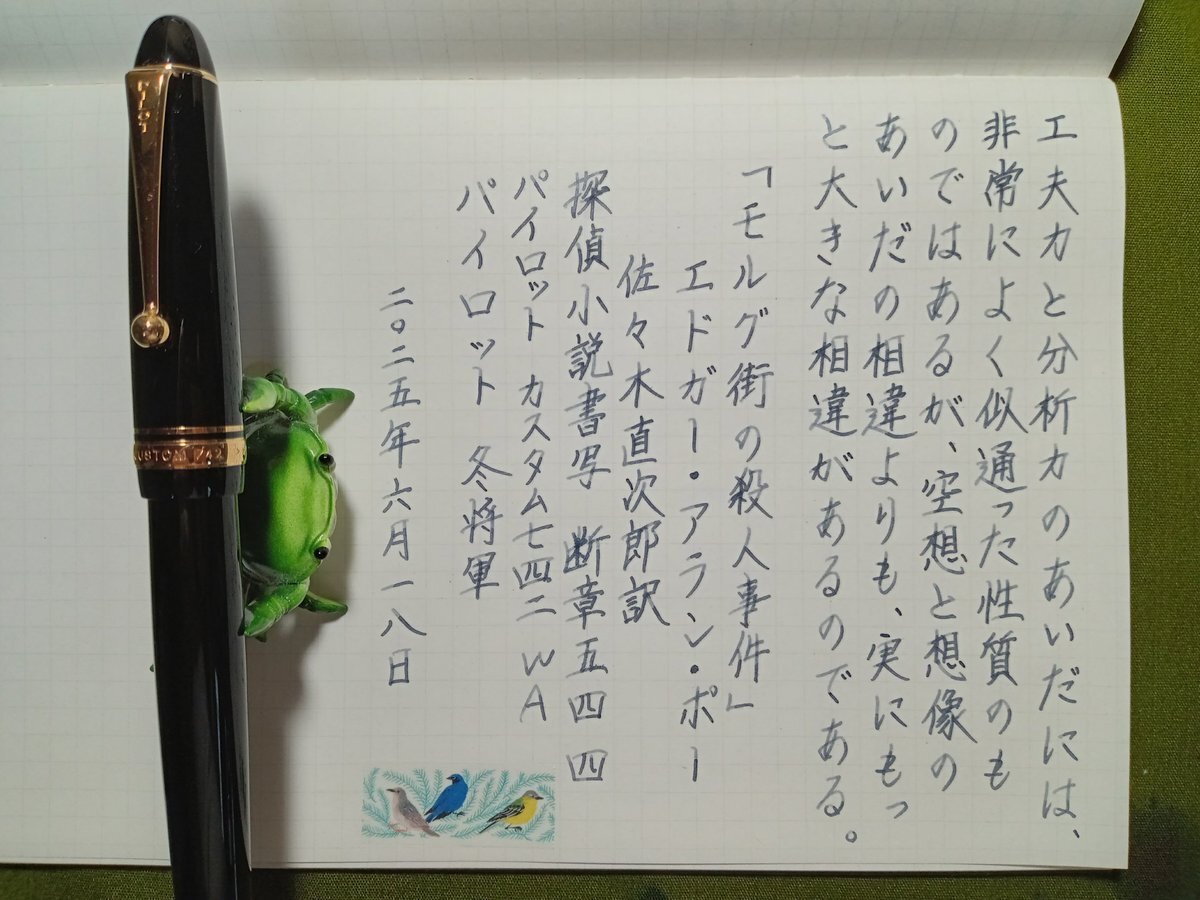 工夫力と分析力のあいだには、
非常によく似通った性質のも
のではあるが、空想と想像の
あいだの相違よりも、実にもっ
と大きな相違があるのである。
「モルグ街の殺人事件」
エドガー・アラン・ポー
佐々木直次郎訳
探偵小説書写 断章五四四
パイロット カスタム七四二 WA
パイロット 冬将軍
二〇二五年六月一八日
PILOT
CUSTOM 742